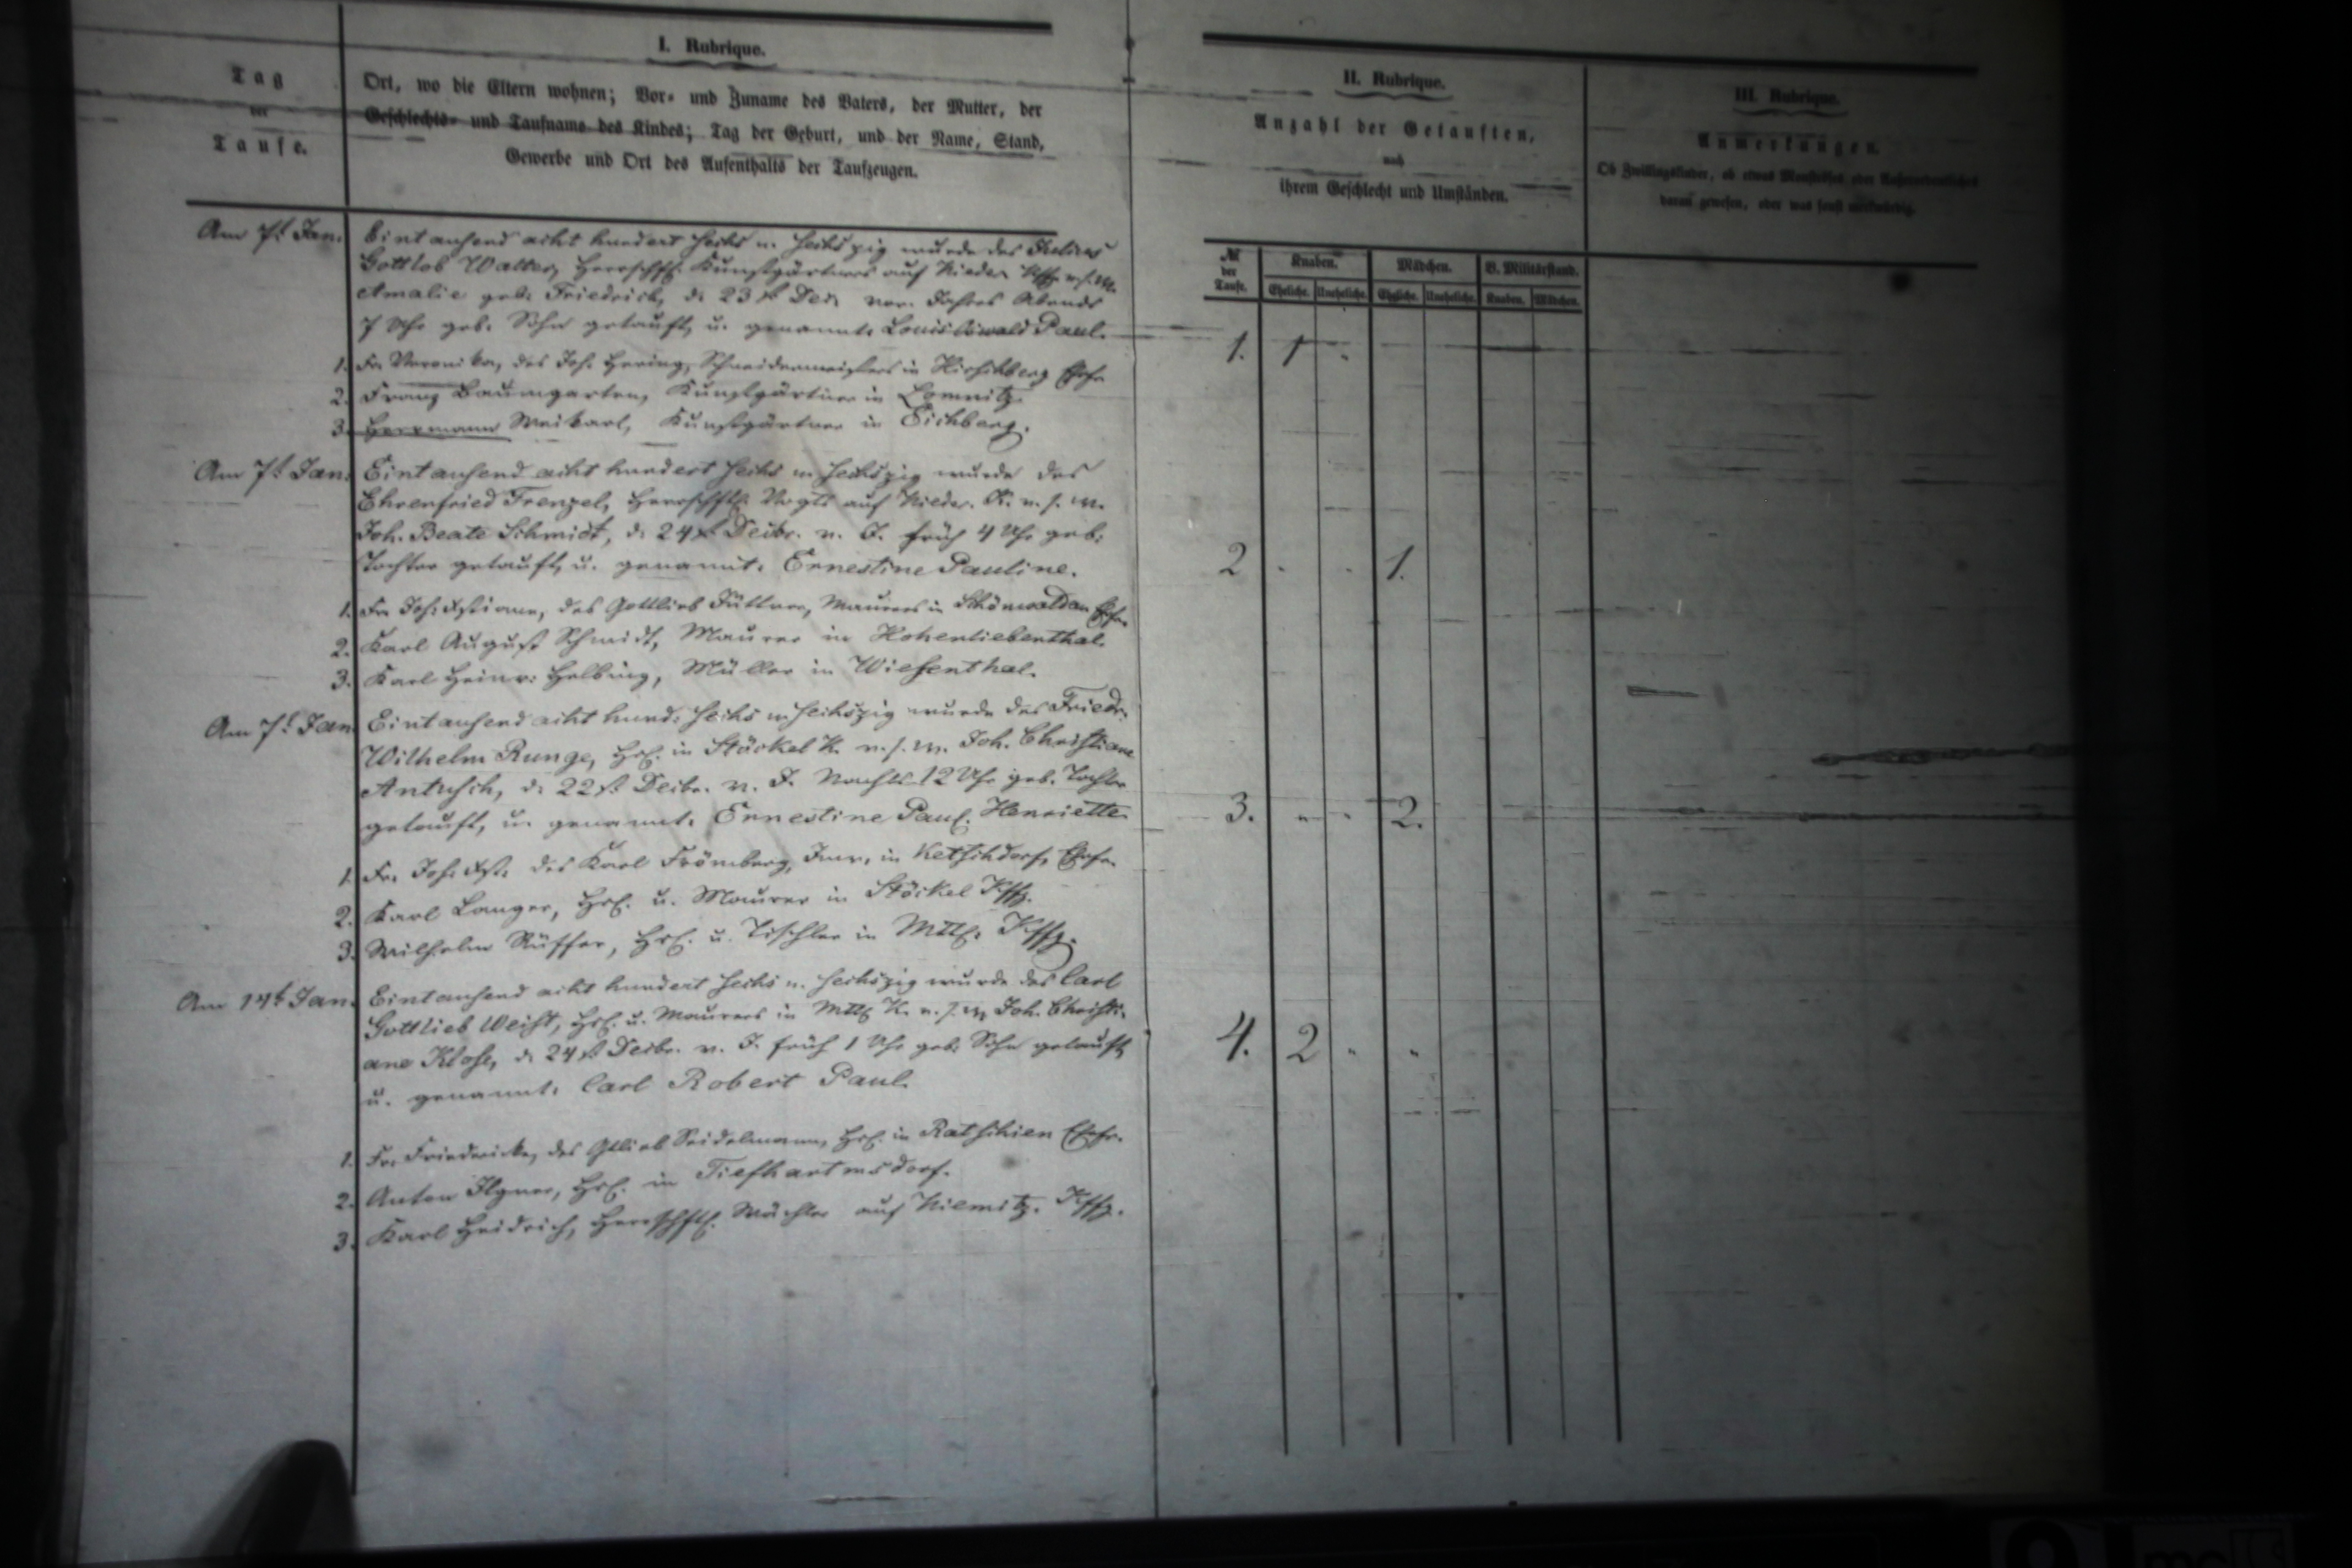 I. Rubrique.
Tag
der
Taufe.
Ort, wo die Eltern wohnen; Vor- und Zuname des Vaters, der Mutter, der
Geschlechts- und Taufname des Kindes; Tag der Geburt, und der Name, Stand,
Gewerbe und Ort des Aufenthalts der Taufzeugen.
Am 7t Jan. Eintausend acht hundert sechs u. sechszig wurde des Julius
Gottlob Walter, herrschftl. Kunstgärtners auf Nieder u. s. W.
Amalie geb. Friedrich, d. 23t Dec. vor. Jahres Abends
7 Uhr geb. Sohn getauft, u. genannt. Louis Oswald Paul.
1. Fr. Veronika, des Joh. Hering, Schneidermeisters in Hirschberg Ehefr.
2. Franz Baumgarten, Kunstgärtner in Lomnitz.
3. Herrmann Weikart, Kunstgärtner in Eichberg.
Am 7t Jan. Eintausend acht hundert sechs u. sechszig wurde des
Ehrenfried Frenzel, herrschftl. Vogts auf Nieder. K. u. s. W.
Joh. Beate Schmidt, d. 24t Decbr. v. J. früh 4 Uhr geb.
Tochter getauft, u. genannt. Ernestine Pauline.
1. Fr. Joh. Xstiane, des Gottlieb Füttner, Maurers in Schönwaldau Ehefr.
2. Karl August Schmidt, Maurer in Hohenliebenthal.
3. Karl Heinr. Helbig, Müller in Wiesenthal.
Am 7t Jan. Eintausend acht hund. sechs u. sechszig wurde des Friedr.
Wilhelm Runge, Hsl. in Stöckel K. u. s. W. Joh. Christiane
Antusch, d. 22t Decbr. v. J. Nachts 12 Uhr geb. Tochter
getauft, u. genannt. Ernestine Paul. Henriette.
1. Fr. Joh. Xst. des Karl Frömberg, Inw. in Ketschdorf, Ehefr.
2. Karl Langer, Hsl. u. Maurer in Stöckel Kffg.
3. Wilhelm Rüffer, Hsl. u. Tischler in Mttl. Kffg.
Am 14t Jan. Eintausend acht hundert sechs u. sechszig wurde des Carl
Gottlieb Weist, Hsl. u. Maurers in Mttl K. u. s. W. Joh. Christi-
ane Klose, d. 24t Decbr. v. J. früh 1 Uhr geb. Sohn getauft
u. genannt. Carl Robert Paul.
1. Fr. Friedericke, des Gtlieb Seidelmann, Hsl. in Ratschien Ehefr.
2. Anton Ilgner, Hsl. in Tiefhartmsdorf.
3. Karl Heidrich, herrschftl. Wächter auf Niemitz. Kffg.
II. Rubrique.
Anzahl der Getauften,
nach
ihrem Geschlecht und Umständen.
№ der Taufe. Knaben. Mädchen. B. Militärstand.
Eheliche. Uneheliche. Eheliche. Uneheliche. Knaben. Mädchen.
1. 1 "
2 " " 1.
3. " " 2.
4. 2 " "
III. Rubrique.
Anmerkungen.
Ob Zwillingskinder, ob etwas Monströses oder Außerordentliches
daran gewesen, oder was sonst merkwürdig.